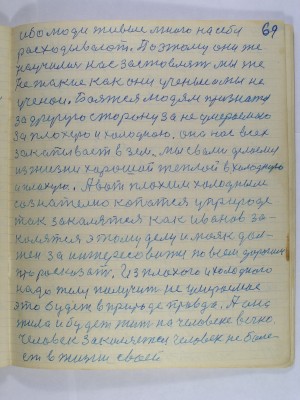 69
ибо люди живые много на себя
расходывают. Поэтому они же
научились нас заставлят мы же
не такие как они ученые мы не
учении. Боятся людям признать
за другую сторону за не умераемою
за плохую и холодною. она нас всех
закапывает в зем. мы свами делаем
из жизни хорошой теплой в холодную
и плохую. А вот плохим холодным
сознателно в природе
так закалятся как иванов за-
калятся этому делу и маяк дол-
жен заинтересовать по всем
рассказат. Из плохого и холодного
надо телу получить не умераемое
это будет в природе правда. А она
жила и будет жит на человеке вечно.
Человек закаляется человек не боле-
ет в жизни своей